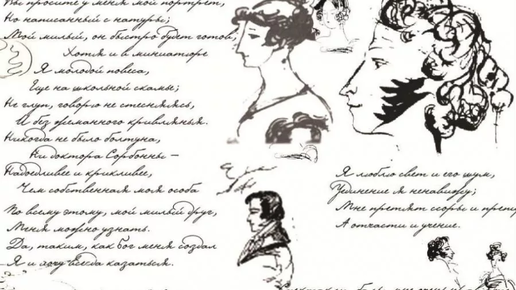 Вы просите у меня мой портрет,
Но написанный с натуры;
Мой милый, он быстро будет готов,
Хотя и в миниатюре
Я молодой повеса,
Еще на школьной скамье;
Не глуп, говорю не стесняясь,
И без жеманного кривлянья.
Никогда не было болтуна,
Ни доктора Сорбонны –
Надоедливее и крикливее,
Чем собственная моя особа
По всему этому, мой милый друг,
Меня можно узнать.
Да, таким, как бог меня создал
Я и хочу всегда казаться.
Я люблю свет и его шум,
Уединение я ненавижу;
Мне претят ссоры и
А отчасти и учение.